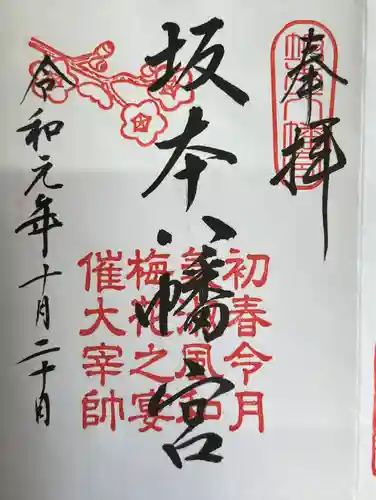 奉拝
坂本八幡宮
令和元年十月二十日
初春令月
気淑風和
梅花之宴
催大宰帥